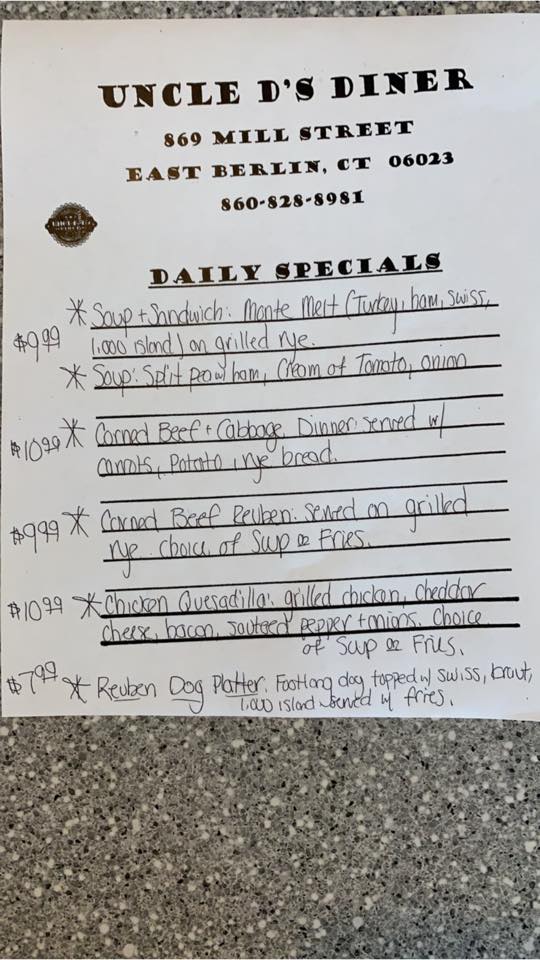 UNCLE D'S DINER
869 MILL STREET
EAST BERLIN, CT 06023
860-828-8981
DAILY SPECIALS
* Soup + Sandwich: Monte Melt (Turkey, ham, swiss,
$9.99 1,000 island) on grilled rye.
* Soup: Split pea w/ ham, Cream of Tomato, onion
$10.99 * Corned Beef + Cabbage Dinner: served w/
carrots, Potato, rye bread.
$9.99 * Corned Beef Reuben: served on grilled
rye. Choice of Soup or Fries.
$10.99 * Chicken Quesadilla: grilled chicken, cheddar
cheese, bacon, sauteed pepper + onions. Choice
of Soup or Fries.
$7.99 * Reuben Dog Platter: Footlong dog topped w/ swiss, kraut,
1,000 island. served w/ fries.